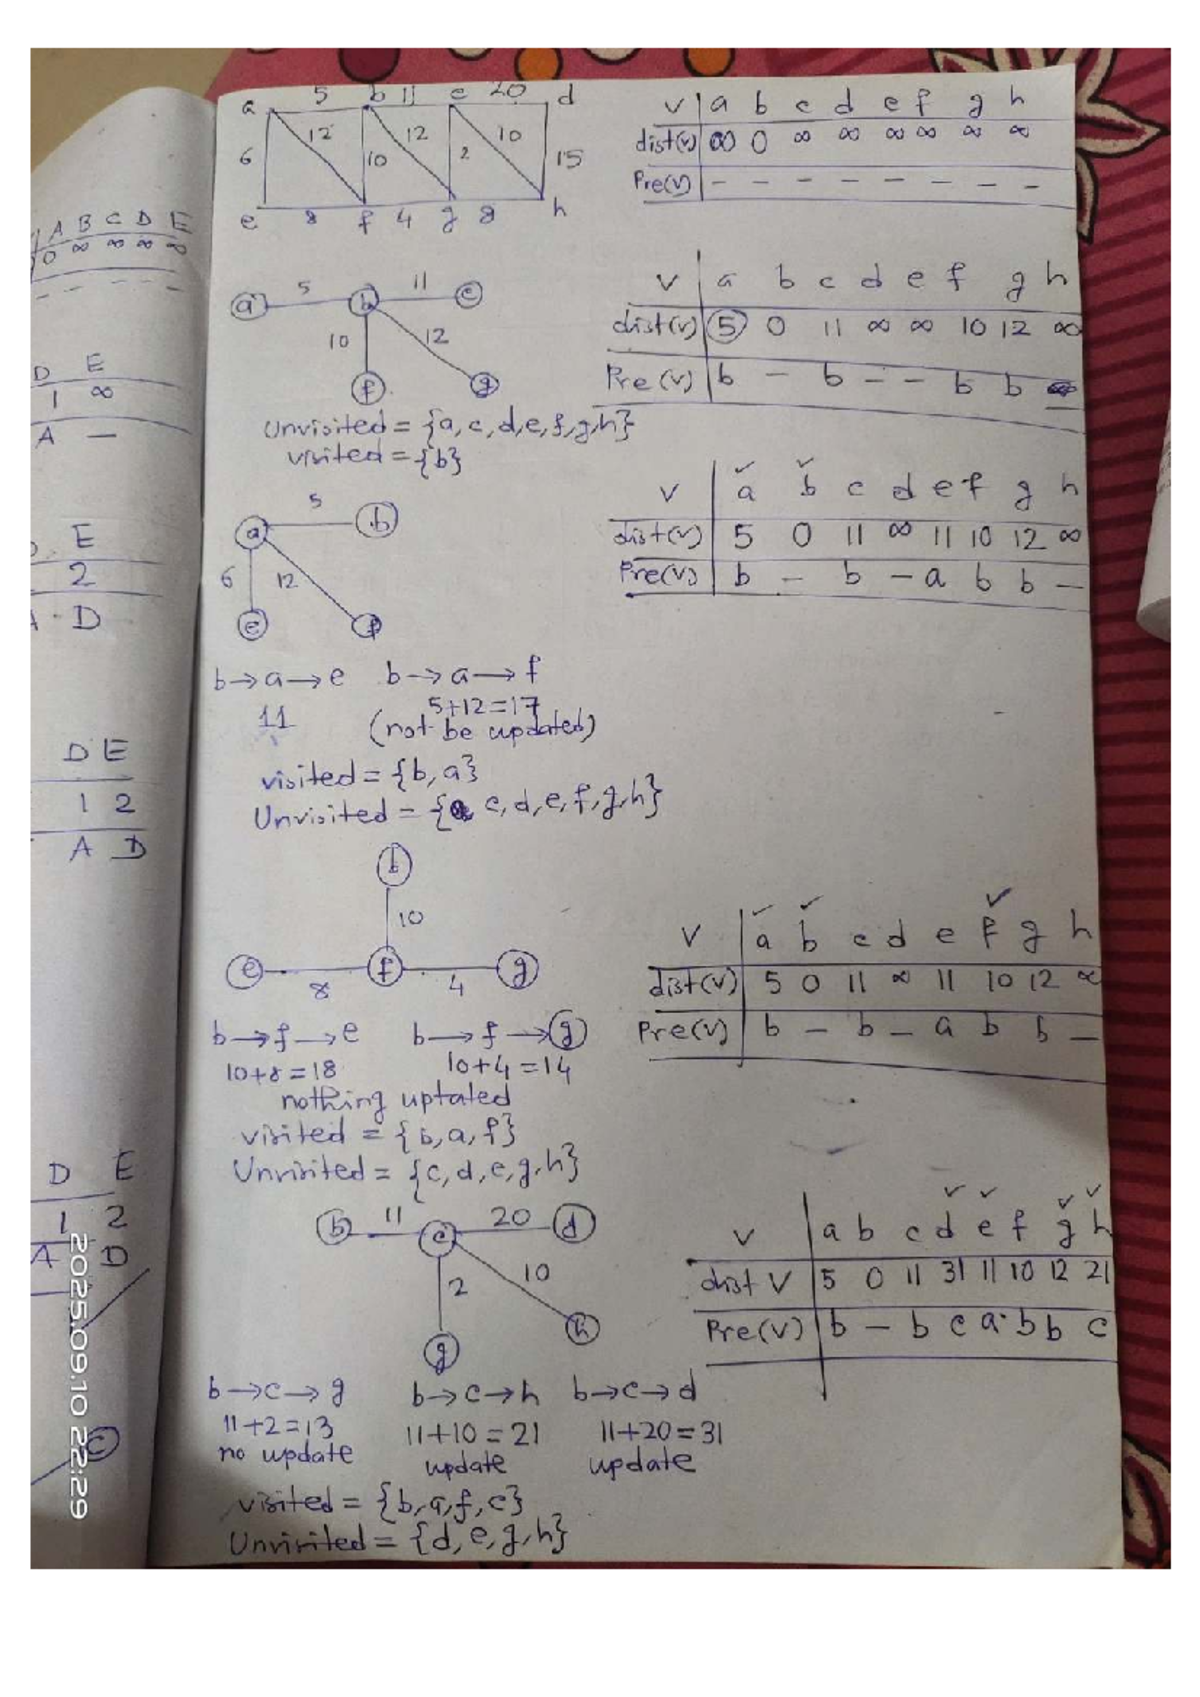 a 5 b 11 c 20 d
6 12 10 12 2 10 15
e 8 f 4 g 8 h
V a b c d e f g h
dist(v) ∞ 0 ∞ ∞ ∞ ∞ ∞ ∞
Pre(v) - - - - - - - -
A B C D E
0 ∞ ∞ ∞ ∞
- - - - -
a 5 b 11 c
10 12
f g
V a b c d e f g h
dist(v) 5 0 11 ∞ ∞ 10 12 ∞
Pre(v) b - b - - b b
Unvisited = {a, c, d, e, f, g, h}
visited = {b}
D E
1 ∞
A -
5
a b
6 12
e f
V a b c d e f g h
dist(v) 5 0 11 ∞ 11 10 12 ∞
Pre(v) b - b - a b b -
E
2
D
b → a → e b → a → f
11 5+12=17
(not be updated)
visited = {b, a}
Unvisited = {c, d, e, f, g, h}
D E
1 2
A D
b
10
e 8 f 4 g
V a b c d e f g h
dist(v) 5 0 11 ∞ 11 10 12 ∞
Pre(v) b - b - a b b -
b → f → e b → f → g
10+8=18 10+4=14
nothing uptated
visited = {b, a, f}
Unvisited = {c, d, e, g, h}
D E
1 2
A D
b 11 c 20 d
2 10
g h
V a b c d e f g h
dist V 5 0 11 31 11 10 12 21
Pre(v) b - b c a b b c
b → c → g b → c → h b → c → d
11+2=13 11+10=21 11+20=31
no update update update
visited = {b, a, f, c}
Unvisited = {d, e, g, h}
C
2025.09.10 22:29